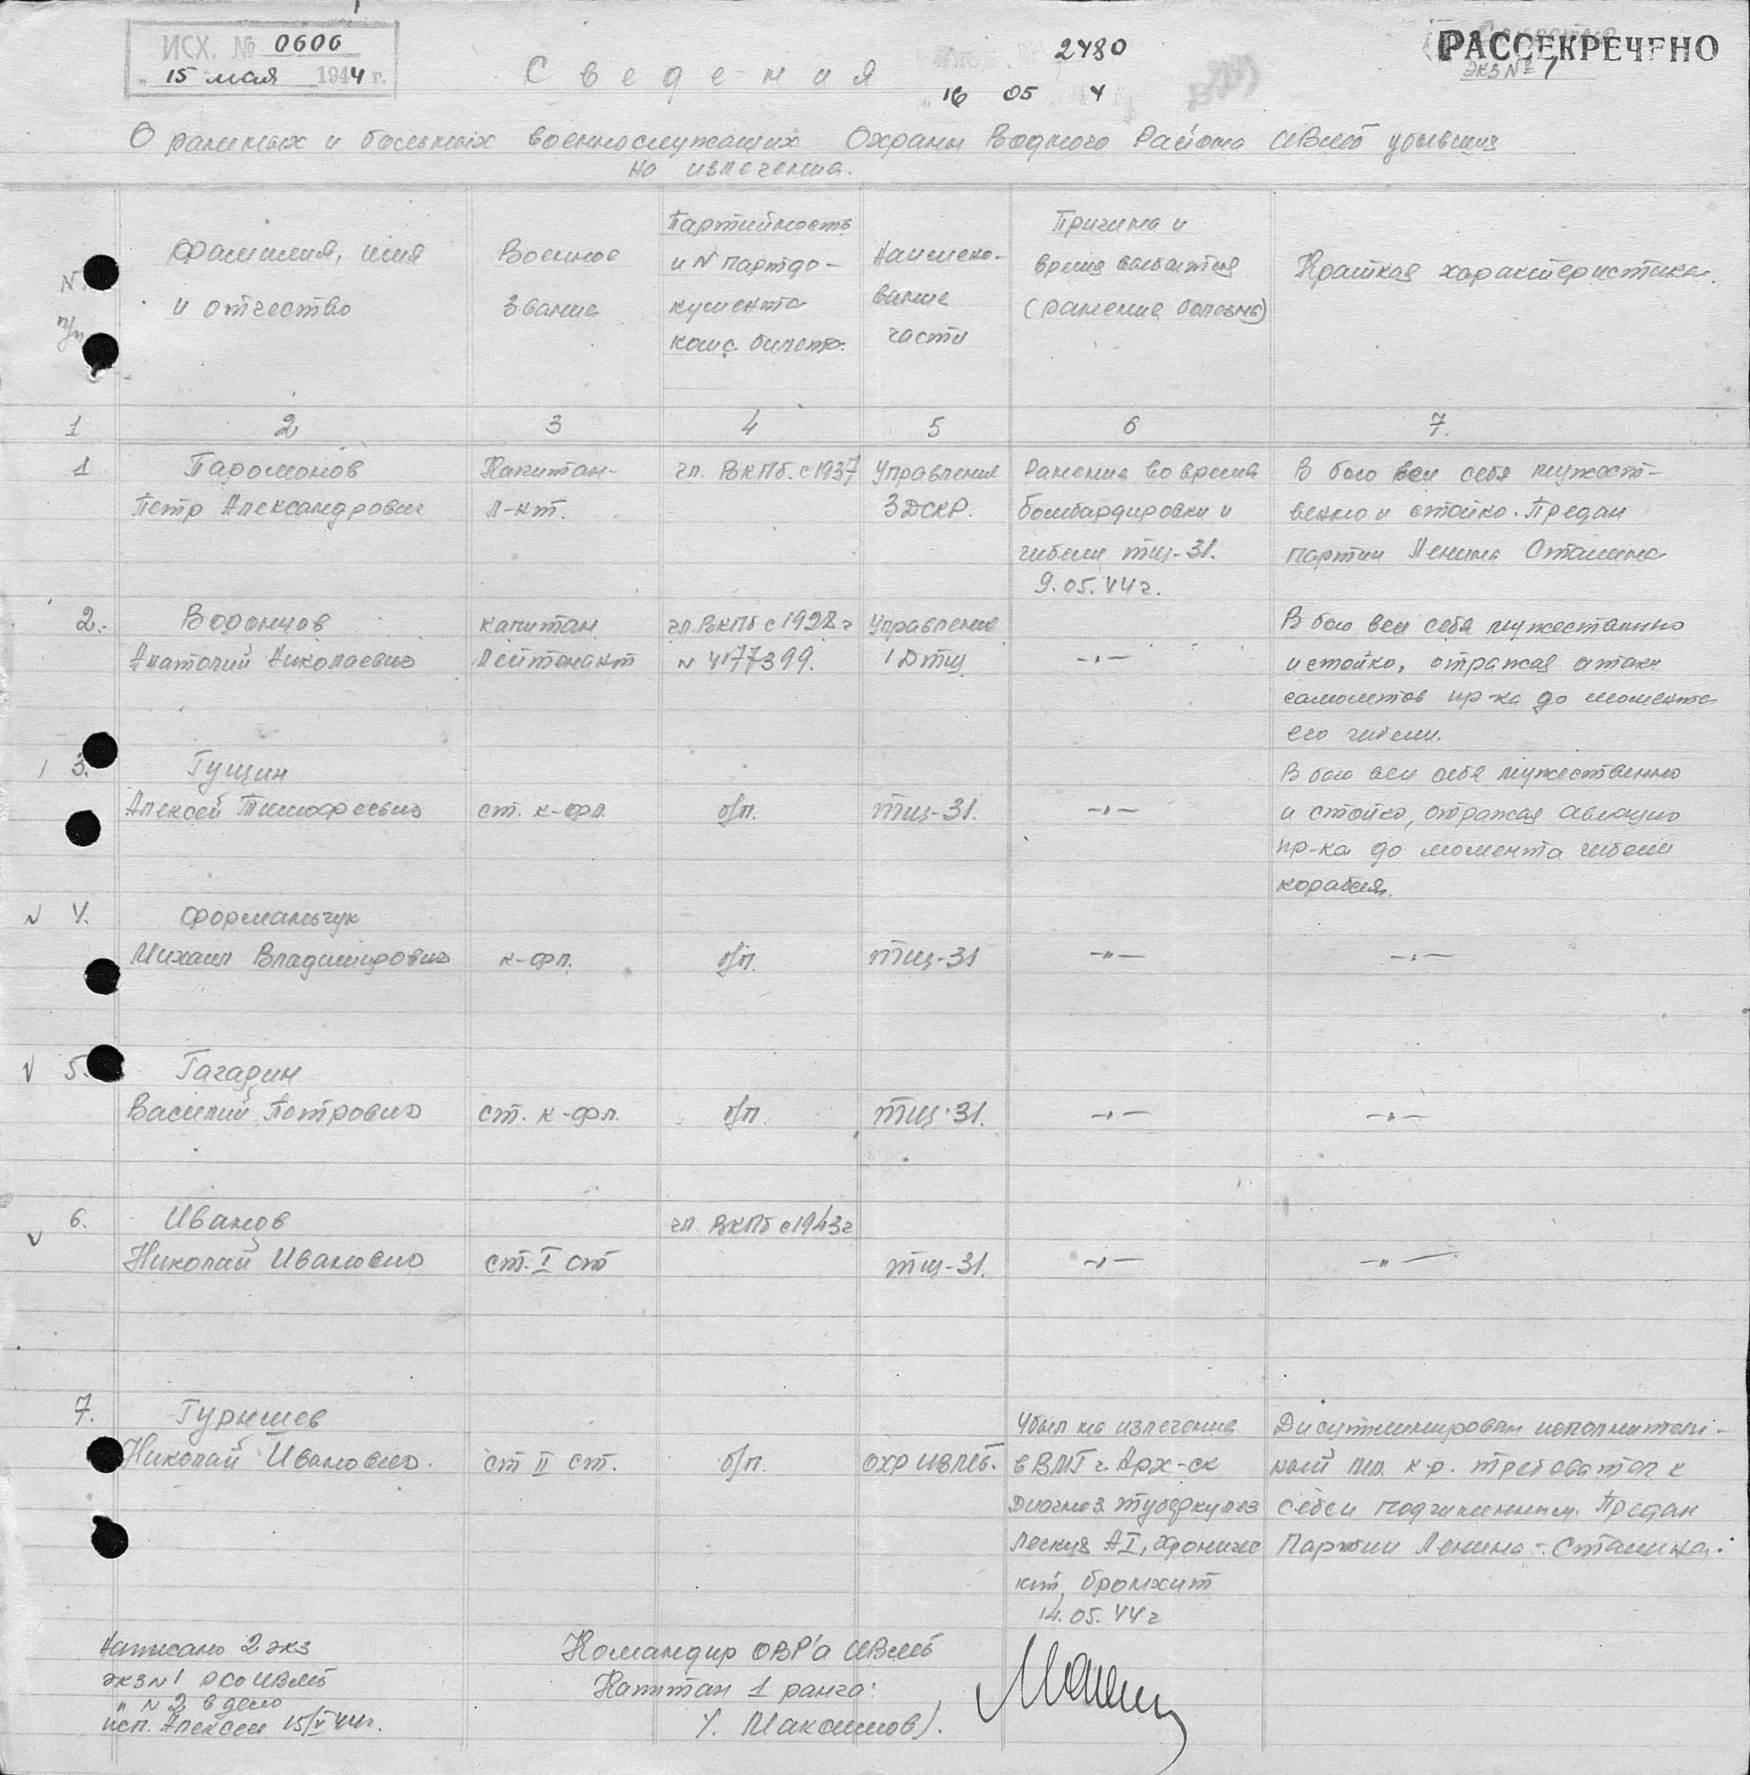 ИСХ. № 0606
РАССЕКРЕЧЕНО
"15 мая 1944 г.
экз № 1
2480
Сведения
16 05 4
О раненых и больных военнослужащих Охраны Водного Района ИВМБ убывших
на излечение.
N п/п
Фамилия, имя
и отчество
Военное
звание
Партийность
и N партдо-
кумента
комс. билета.
Наимено-
вание
части
Причина и
время выбытия
(ранение болезнь)
Краткая характеристика.
1 2 3 4 5 6 7.
1 Парамонов Капитан- чл. ВКПб. с 1937 Управление Ранение во время В бою вел себя мужест-
Петр Александрович л-нт. 3 ДСКР. бомбардировки и венно и стойко. Предан
гибели тщ-31. партии Ленина Сталина
9.05.44г.
2. Воронцов капитан чл. ВКПб с 1928 г Управление В бою вел себя мужественно
Анатолий Николаевич Лейтенант N 4177399. 1 Дтщ -"- и стойко, отражая атаки
самолетов пр-ка до момента
его гибели.
3. Гущин В бою вел себя мужественно
Алексей Тимофеевич ст. к-фл. б/п. тщ-31. -"- и стойко, отражая авиацию
пр-ка до момента гибели
корабля.
4. Формальчук
Михаил Владимирович к-фл. б/п. тщ-31 -"- -"-
5. Гагарин
Василий Петрович ст. к-фл. б/п. тщ-31. -"- -"-
6. Иванов чл. ВКПб с 1943 г
Николай Иванович ст. I ст тщ-31. -"- -"-
7. Гурышев Убыл на излечение Дисциплинирован исполнитель-
Николай Иванович. ст II ст. б/п. ОХР ИВМБ. в ВМГ г. Арх-ск ный мл. к-р. требователен к
Диагноз туберкулез себе и подчиненным. Предан
Легких А I, хрониче Партии Ленина - Сталина.
кий, бронхит
14.05.44 г
Написано 2 экз
экз N 1 ИВМБ
" N 2 в дело
исп. Алексеев 15/V 44г.
Командир ОВР'а ИВМБ
Капитан 1 ранга:
Максимов).